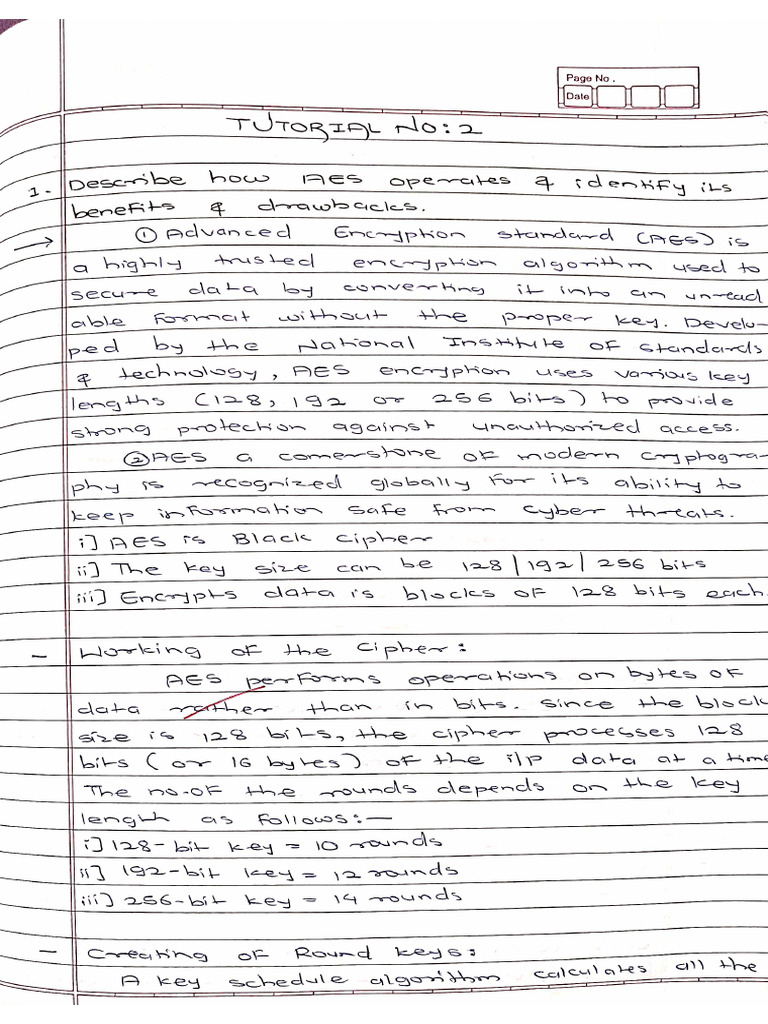 Page No.
Date
TUTORIAL NO: 2
1. Describe how AES operates & identify its
benefits & drawbacks.
→ ① Advanced Encryption standard (AES) is
a highly trusted encryption algorithm used to
secure data by converting it into an unread
able format without the proper key. Develo-
ped by the National Institute of standards
& technology, AES encryption uses various key
lengths (128, 192 or 256 bits) to provide
strong protection against unauthorized access.
② AES a cornerstone of modern cryptogra-
phy is recognized globally for its ability to
keep information safe from cyber threats.
i] AES is Black Cipher
ii] The key size can be 128/192/256 bits
iii] Encrypts data is blocks of 128 bits each.
- Working of the Cipher:
AES performs operations on bytes of
data rather than in bits. Since the block
size is 128 bits, the cipher processes 128
bits (or 16 bytes) of the i/p data at a time
The no.of the rounds depends on the key
length as follows:-
i] 128-bit key = 10 rounds
ii] 192-bit key = 12 rounds
iii] 256-bit key = 14 rounds
- Creating of Round keys:
A key schedule algorithm calculates all the